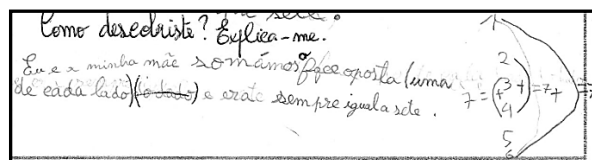 Como descobriste? Explica-me.
Eu e a minha mãe somámos face oposta (uma
de cada lado) (o dado) e erate sempre igual a sete.
1
2
7 = (+3+) = 7 + = 7
4
5
6